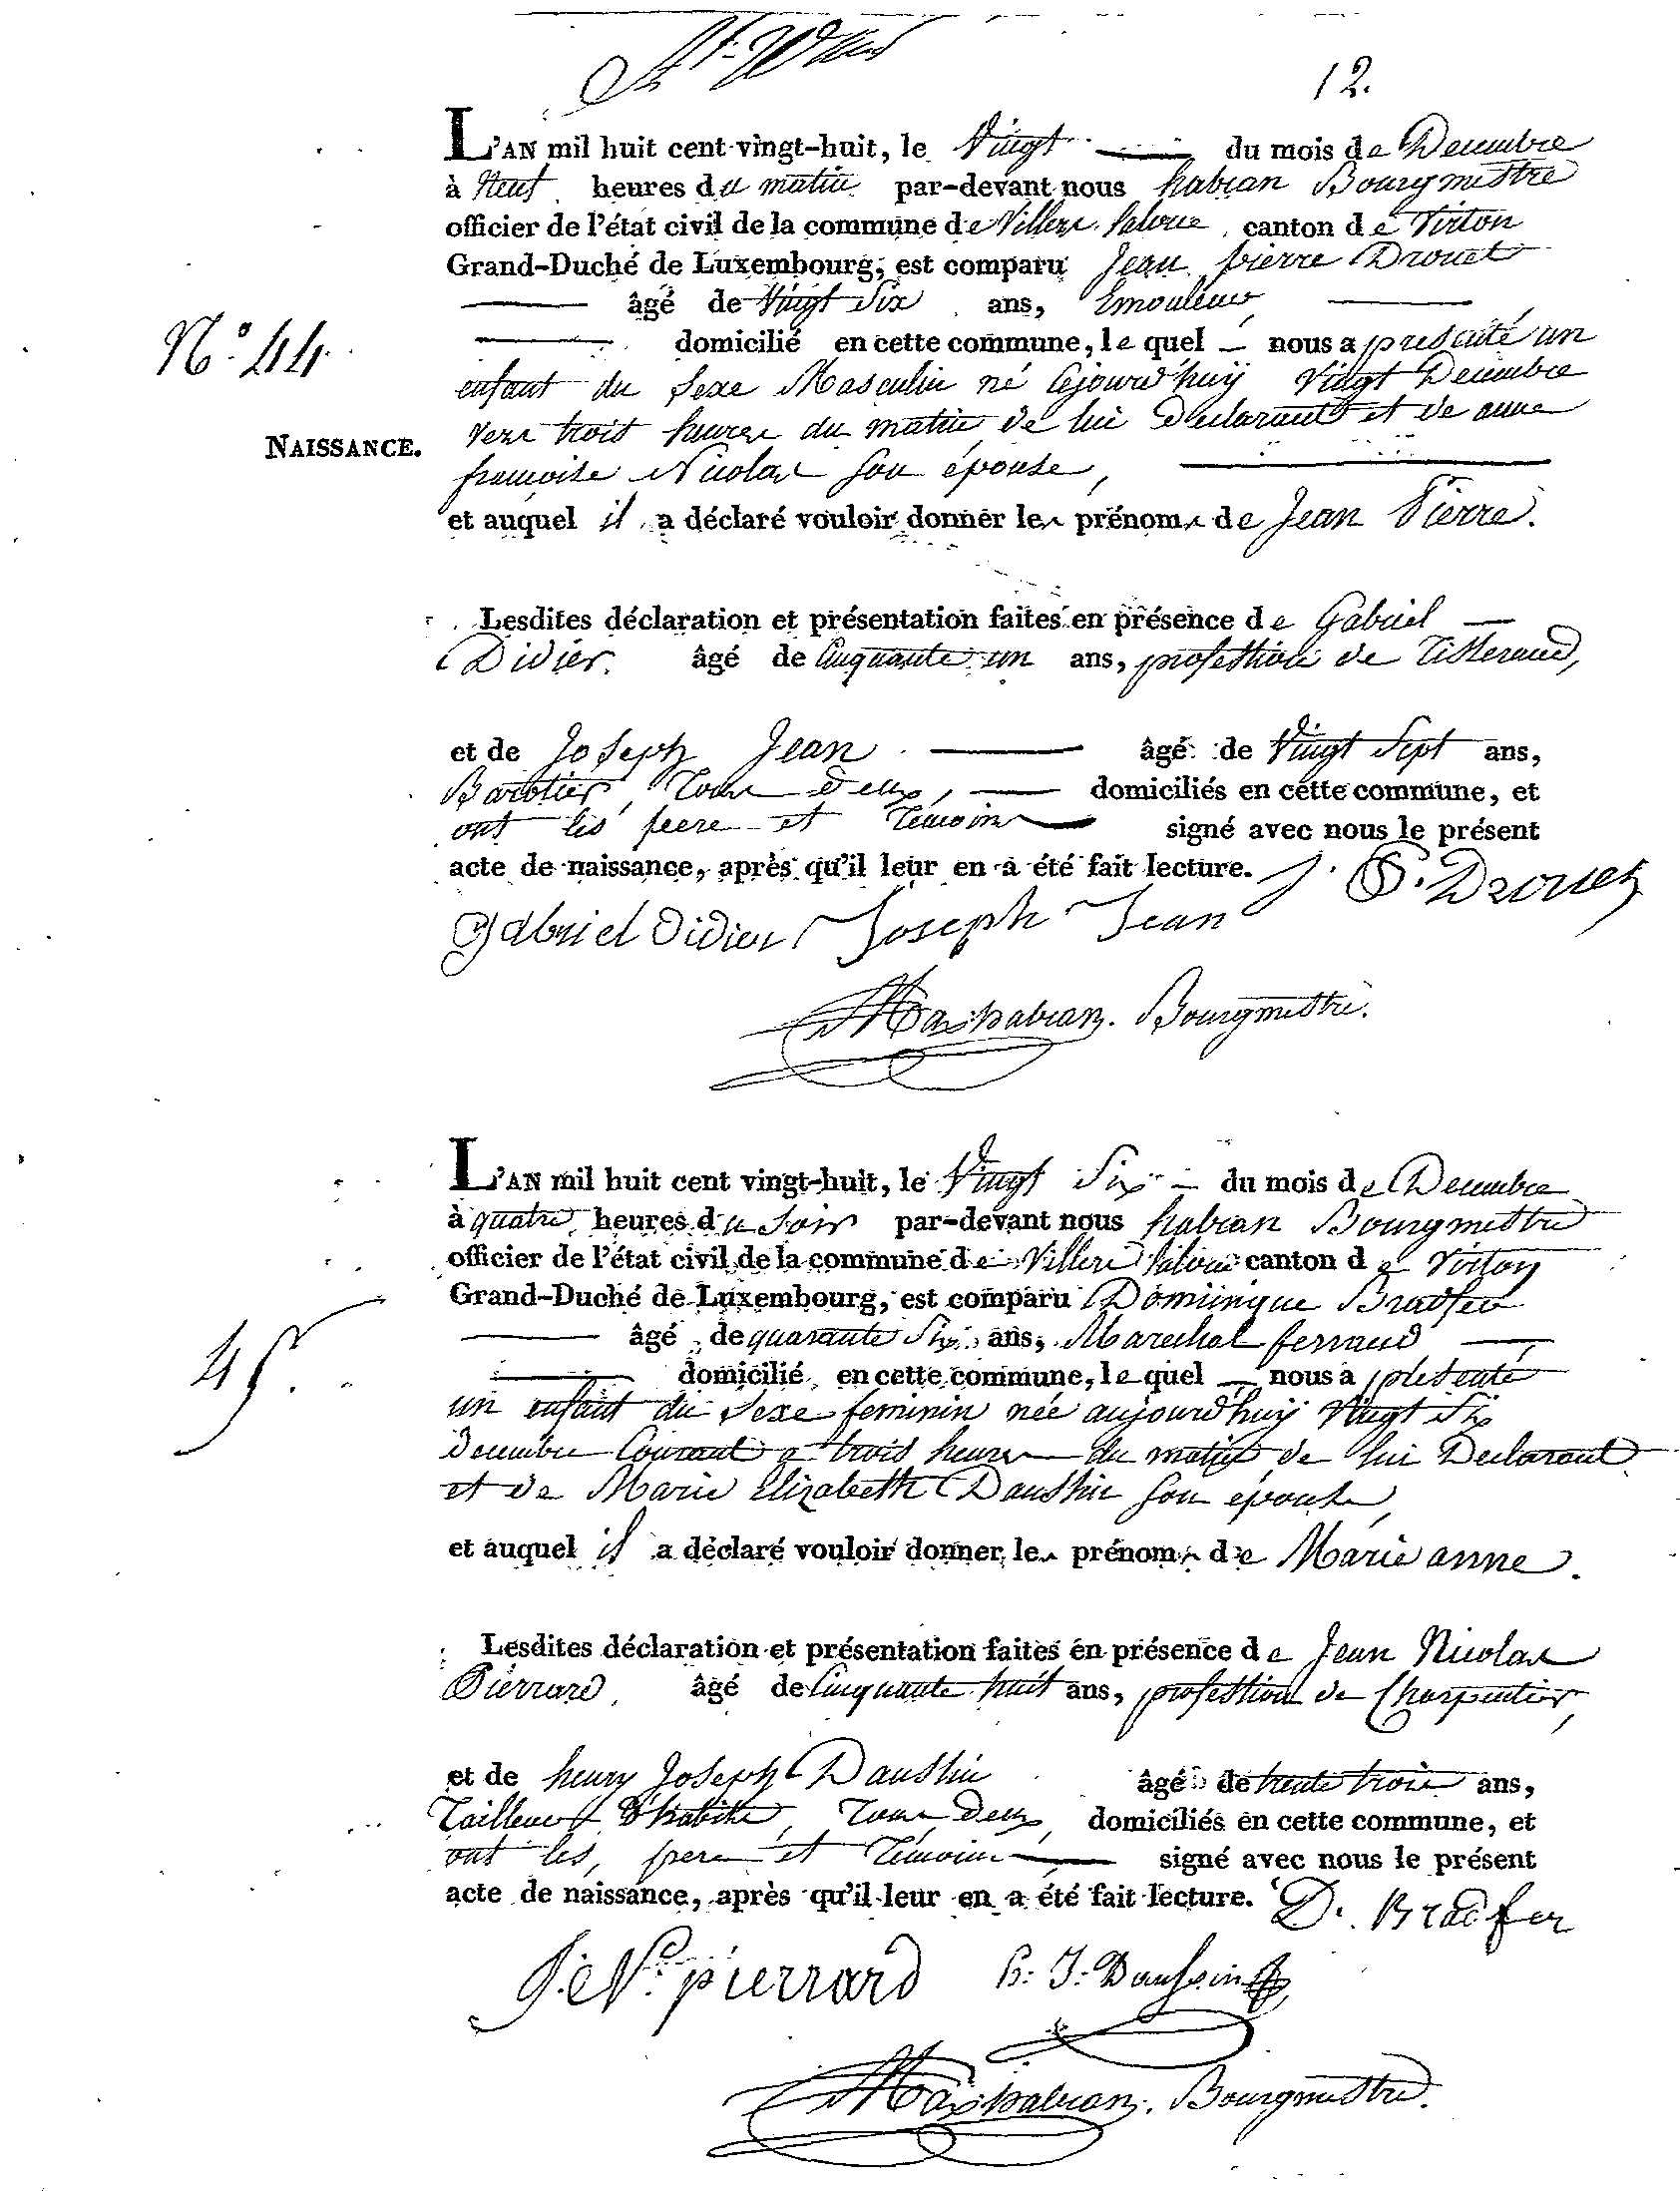 12.
L'AN mil huit cent vingt-huit, le Vingt du mois de Decembre
à Neuf heures du matin par-devant nous habran Bourgmestre
officier de l'état civil de la commune de Villers-la loue canton de Virton
Grand-Duché de Luxembourg, est comparu Jean pierre Drouet
âgé de Vingt Six ans, Emouleur,
N.° 44.
domicilié en cette commune, lequel nous a presenté un
enfant du Sexe Masculin né cejourd'huÿ Vingt Decembre
vers trois heures du matin de lui Declarant et de anne
NAISSANCE.
françoise Nicolas son épouse,
et auquel il a déclaré vouloir donner les prénoms de Jean Pierre.
Lesdites déclaration et présentation faites en présence de Gabriel
Didier. âgé de Cinquante un ans, profession de Tisserand,
et de Joseph Jean âgé de Vingt Sept ans,
Tous deux, domiciliés en cette commune, et
ont les peere et Témoins signé avec nous le présent
acte de naissance, après qu'il leur en a été fait lecture. J. P. Drouet
Gabriel Didier Joseph Jean
habran. Bourgmestre.
L'AN mil huit cent vingt-huit, le Vingt Six du mois de Decembre
à quatre heures du Soir par-devant nous habran Bourgmestre
officier de l'état civil de la commune de Villers la loue canton de Virton
Grand-Duché de Luxembourg, est comparu Dominique Bradfer
âgé de quarante Six ans, Marechal ferrand
45.
domicilié en cette commune, lequel nous a présenté
un enfant du Sexe feminin née aujourd'huÿ Vingt Six
decembre Courant a trois heures du matin de lui Declarant
et de Marie Elizabeth Daussin son épouse,
et auquel il a déclaré vouloir donner les prénoms de Marie anne.
Lesdites déclaration et présentation faites en présence de Jean Nicolas
Pierrard, âgé de Cinquante huit ans, profession de Charpentier,
et de henry Joseph Daussin âgé de trente trois ans,
Tailleur d'habits, Tous deux, domiciliés en cette commune, et
ont les, pere et Témoins signé avec nous le présent
acte de naissance, après qu'il leur en a été fait lecture. D. Bradfer
J. N. pierrard h: J: Daussin
habran. Bourgmestre.